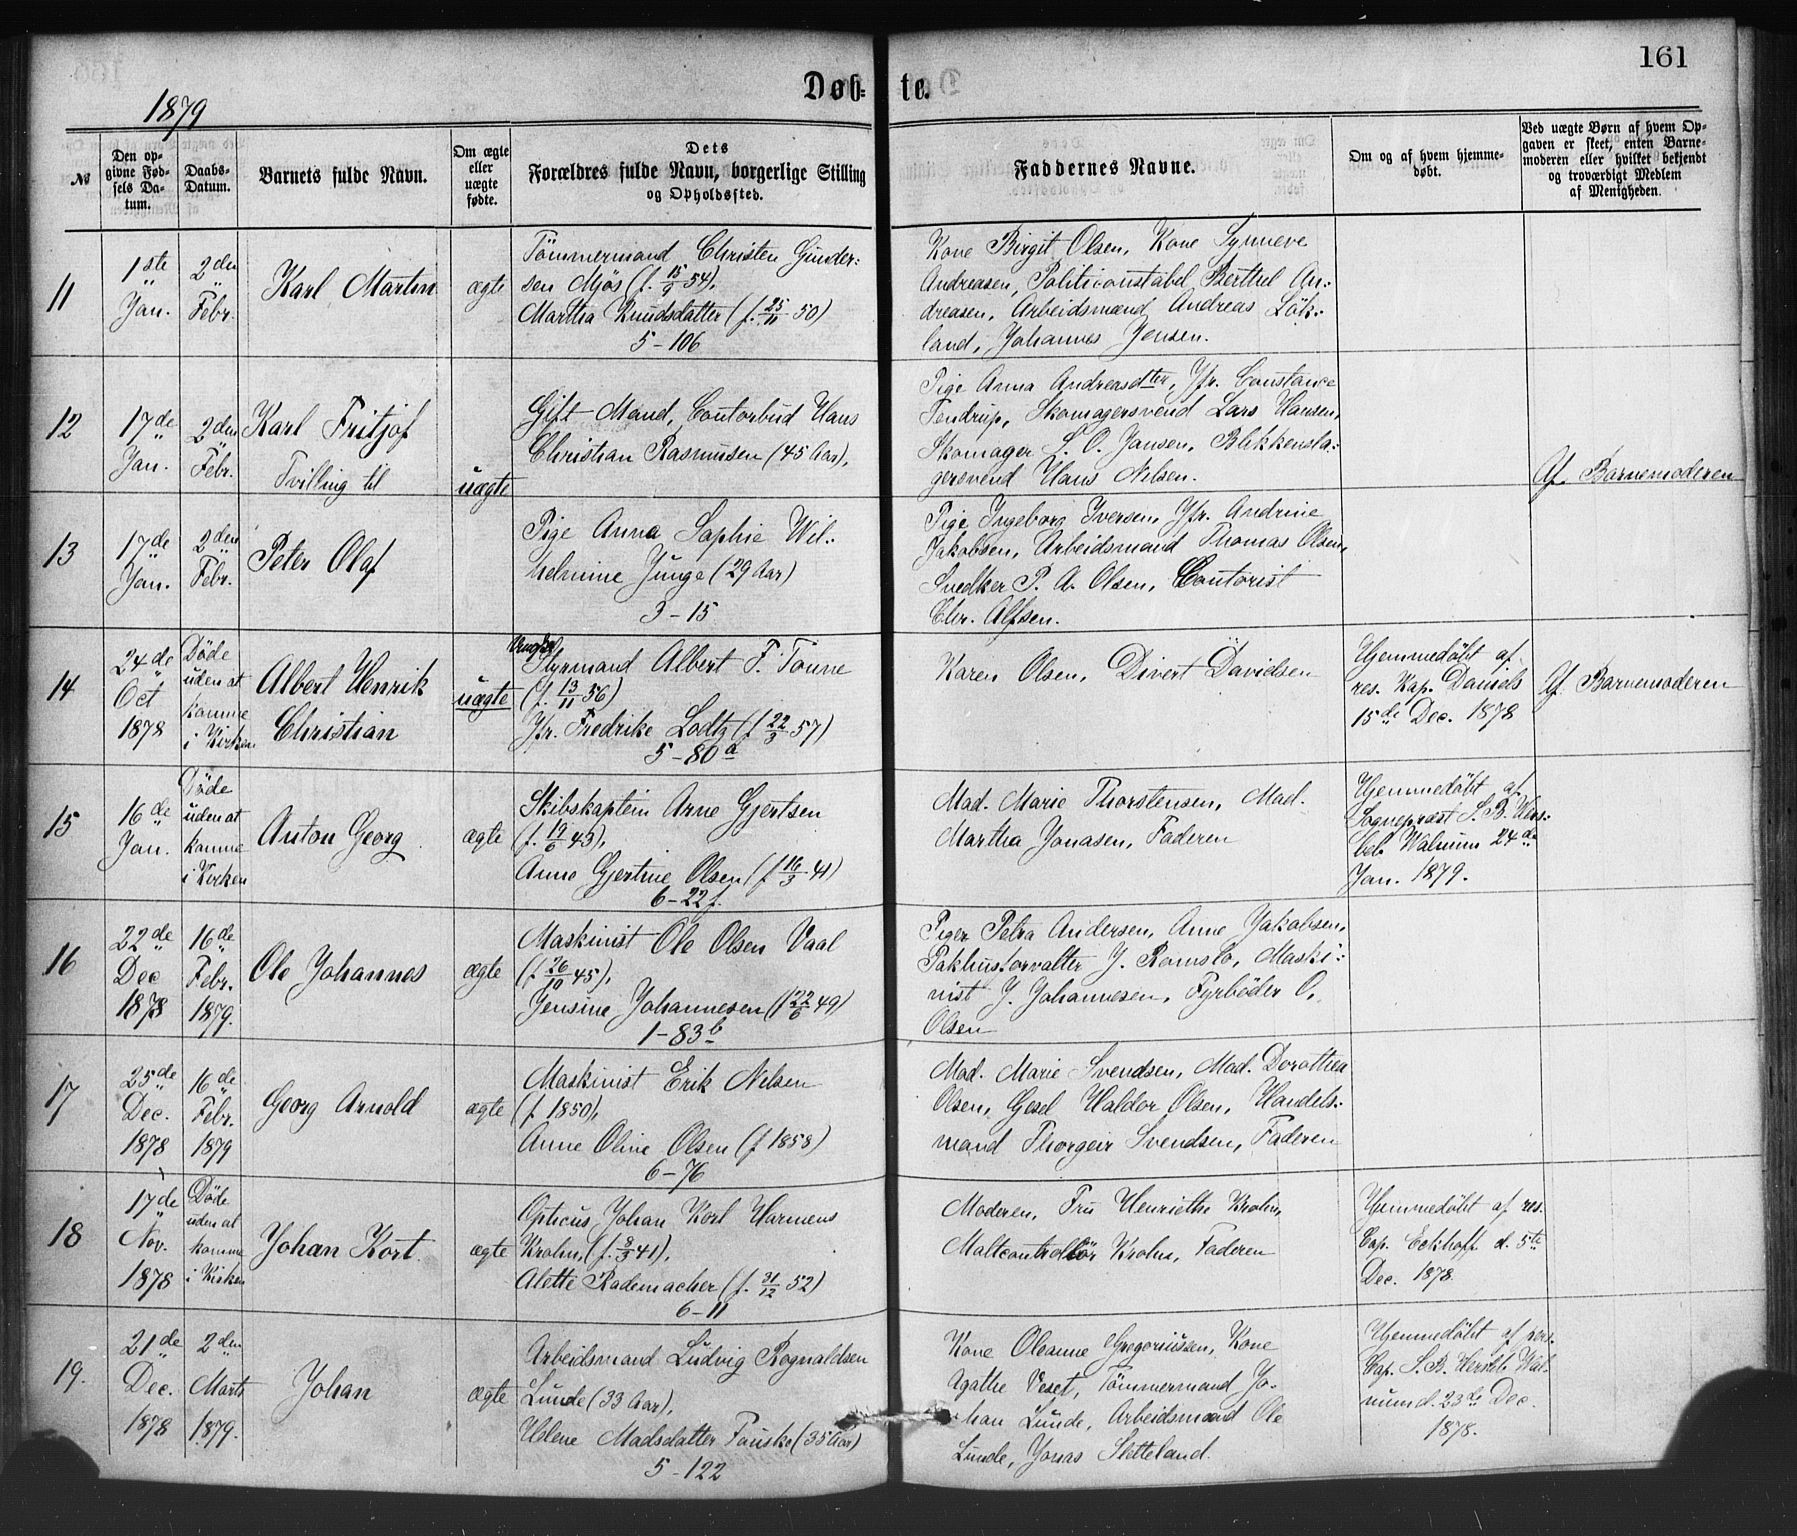 161
Døb- te.
1879
№
Den op-
givne Fød-
sels Da-
tum.
Daabs-
Datum.
Barnets fulde Navn.
Om ægte
eller
uægte
fødte.
Dets
Forældres fulde Navn, borgerlige Stilling
og Opholdssted.
Faddernes Navne.
Om og af hvem hjemme-
døbt.
Ved uægte Børn af hvem Op-
gaven er skeet, enten Barne-
moderen eller hvilket bekjendt
og troværdigt Medlem
af Menigheden.
11
1ste
Jan.
2den
Febr.
Karl Martin
ægte
Tömmermand Christen Gunder-
sen Mjös (f. 15/9 54),
Martha Knudsdatter (f. 25/11 50)
5-106
Kone Birgit Olsen, Kone Synneve
Andreasen, Politiconstabel Berthel An-
dreasen, Arbeidsmænd Andreas Lök-
land, Johannes Jensen.
12
17de
Jan.
2den
Febr.
Karl Fritjof
Tvilling til
uægte
Gift Mand, Contorbud Hans
Christian Rasmussen (45 Aar),
Pige Anna Andreasdter, Jfr. Constance
Tendrup, Skomagersvend Lars Hansen,
Skomager S. O. Jansen, Blikkensla-
gersvend Hans Nilsen.
Af Barnemoderen
13
17de
Jan.
2den
Febr.
Peter Olaf
Pige Anna Sophie Wil-
helmine Junge (29 Aar)
3-15
Pige Ingeborg Iversen, Jfr. Andrine
Jakobsen, Arbeidsmand Thomas Olsen,
Snedker P. A. Olsen, Contorist
Chr. Alfsen.
14
24de
Oct
1878
Döde
uden at
komme
i Kirken
Albert Henrik
Christian
uægte
Ungkl
Styrmand Albert F. Tonne
(f. 13/11 56)
Jfr. Fredrike Lodtz (f 22/3 57)
5-80a
Karen Olsen, Divert Davidsen
Hjemmedöbt af
res. Kap. Daniels
15de Dec. 1878
Af Barnemoderen
15
16de
Jan.
Döde
uden at
komme
i Kirken
Anton Georg
ægte
Skibskaptein Arne Gjertsen
(f. 19/6 43),
Anne Gjertine Olsen (f 16/3 41)
6-22f.
Mad. Marie Thorstensen, Mad.
Martha Jonasen, Faderen
Hjemmedöbt af
Sognepræst S. B. Hers-
leb Walnum 24de
Jan. 1879.
16
22de
Dec
1878
16de
Febr.
1879.
Ole Johannes
ægte
Maskinist Ole Olsen Vaal
(f 26/10 45),
Jensine Johannesen (f 22/6 49)
1-83b
Piger Petra Andersen, Anne Jakobsen,
Pakhusforvalter J. Romslo, Maski-
nist J. Johannesen, Fyrböder O.
Olsen
17
25de
Dec.
1878
16de
Febr.
1879
Georg Arnold
ægte
Maskinist Erik Nilsen
(f 1850),
Anne Oline Olsen (f 1858)
6-76
Mad. Marie Svendsen, Mad. Dorothea
Olsen, Gesel Haldor Olsen, Handels-
mand Thorgeir Svendsen, Faderen
18
17de
Nov.
1878
Döde
uden at
komme
i Kirken
Johan Kort
ægte
Opticus Johan Kort Harmens
Krohn, (f. 8/3 41),
Alette Rademacher (f. 31/12 52)
6-11
Moderen, Fru Henriethe Krohn,
Maltcontrollör Krohn, Faderen
Hjemmedöbt af res.
Cap. Eckhoff d. 5te
Dec. 1878
19.
21de
Dec.
1878
2den
Marts
1879.
Johan
ægte
Arbeidsmand Ludvig Rognaldsen
Lunde (33 Aar),
Helene Madsdatter Fauske (35 Aar)
5-122
Kone Oleanne Gregoriussen, Kone
Agathe Veset, Tömmermand Jo-
han Lunde, Arbeidsmand Ole
Lunde, Jonas Sletteland.
Hjemmedöbt af pers.
Cap. S. B. Hersleb Wal-
num d. 23de Dec.
1878.